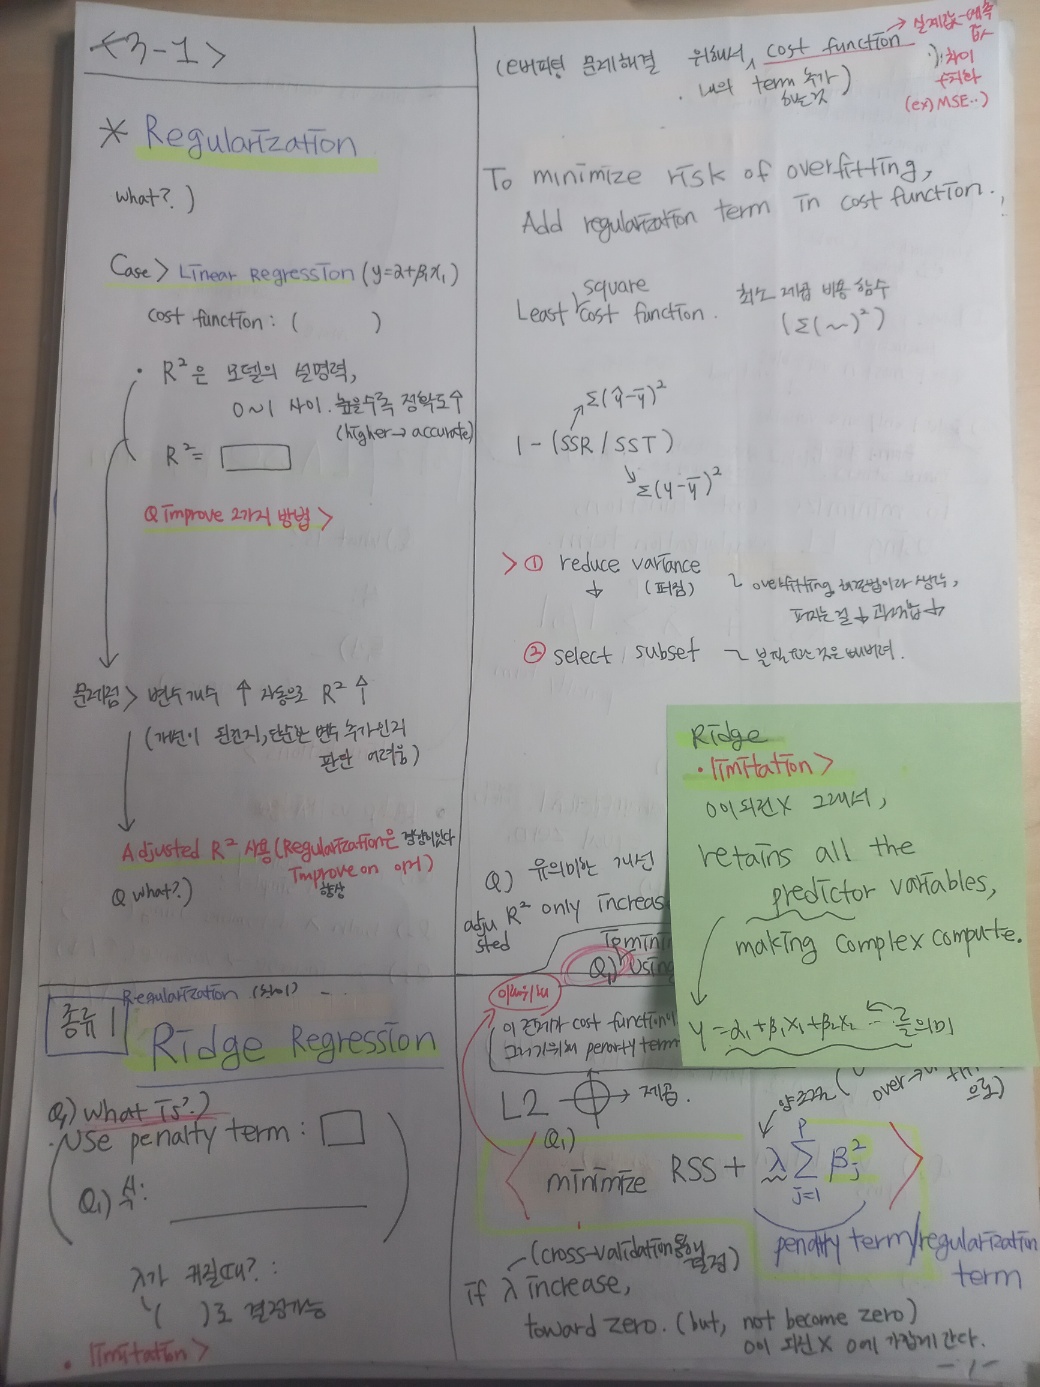 <3-1>
* Regularization
what?.)
Case> Linear Regression (y=α+β₁x₁)
cost function: (        )
· R²은 모델의 설명력,
0~1 사이. 높을수록 정확도수
(higher→accurate)
R²=
Q improve 2가지 방법>
문제점> 변수개수 ↑ 자동으로 R² ↑
(개선이 된건지, 단순한 변수 추가인지
판단 어려움)
Adjusted R² 사용(Regularization은
improve on 여기)
향상
Q what?.)
(오버피팅 문제해결 위해서, cost function → 실제값-예측값
내의 term 추가
하는것)
차이
(ex) MSE..)
To minimize risk of overfitting,
Add regularization term in cost function.
square
Least cost function. 최소 제곱 비용 함수
(Σ(~)²)
Σ(ŷ-ȳ)²
1-(SSR/SST)
Σ(y-ȳ)²
> ① reduce variance
(퍼짐)
~ overfitting 해결법이라 생각,
② select subset ~
Q) 유의미한 개선
adjusted R² only increas
Q₁) Using
Ridge
· limitation>
0이 되진 X 그래서,
retains all the
predictor variables,
making complex compute.
y=α₁+β₁x₁+β₂x₂ ··· 를 의미
종류 1
Regularization
Ridge Regression
Q₁) what is?.)
· Use penalty term:
Q₁) 식:
λ가 커질때?:
(      )로 결정가능
· limitation>
penalty term
L2 → 제곱.
Q₁)
minimize RSS + λ Σ βj²
p
j=1
penalty term/regularization
term
(cross-validation통해
결정)
if λ increase,
toward zero. (but, not become zero)
0이 되진 X 0에 가깝게 간다.
-1-